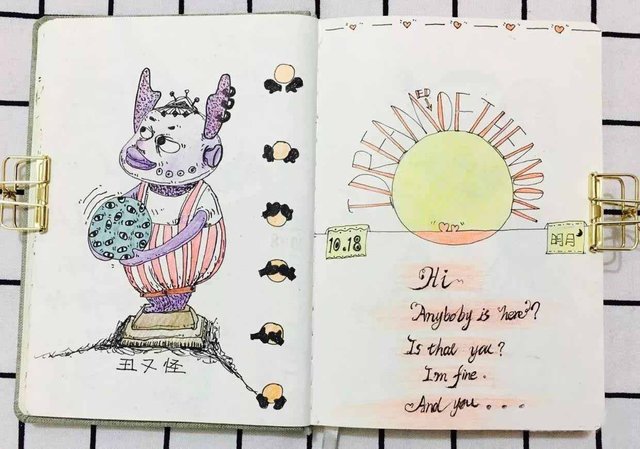 丑又怪
I DREAM OF THE MOON
ED
10.18
明月
Hi
Anyboby is here?
Is that you?
Im fine.
And you...